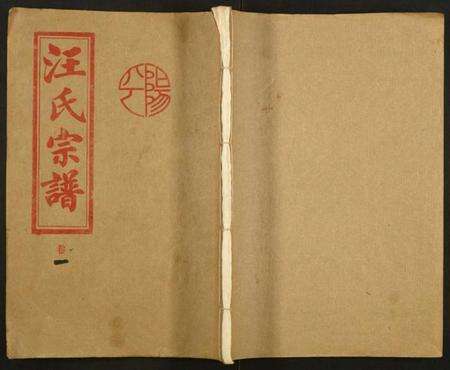 汪氏宗譜
卷
一